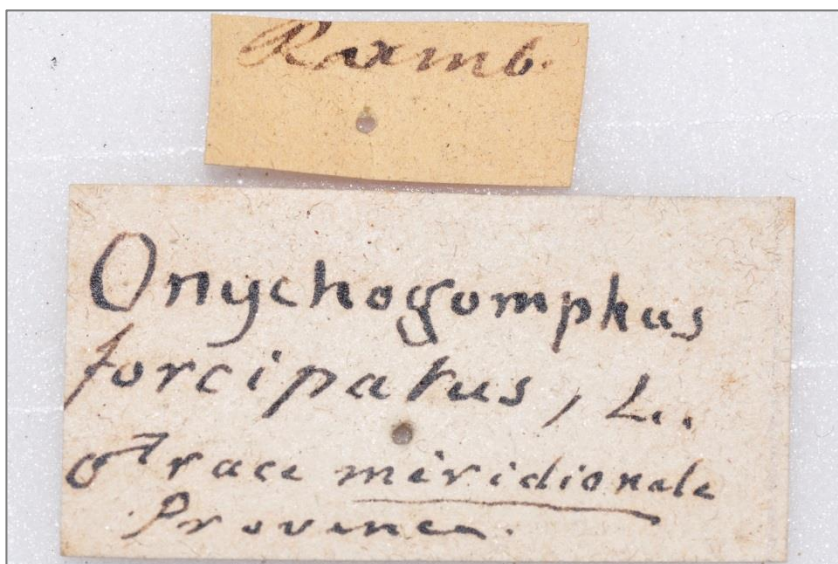 Ramb.
Onychogomphus
forcipatus, L.
♂ race méridionale
Provence.